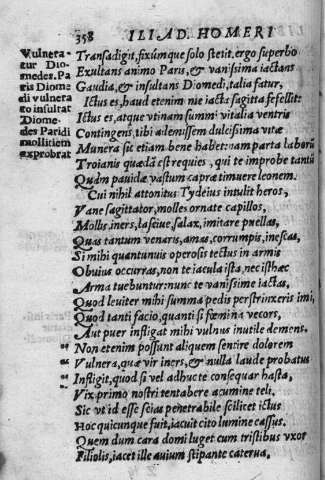 358 ILIAD. HOMERI
Vulnera-
tur Dio-
medes. Pa
ris Diome
di vulnera
to insultat
Diome-
des Paridi
mollitiem
exprobrat
Transadigit, fixúmque solo stetit. ergo superbo
Exultans animo Paris, & vanissima iactans
Gaudia, & insultans Diomedi, talia fatur,
Ictus es, haud etenim nie iacta sagitta fefellit:
Ictus es, atque vtinam summi vitalia ventris
Contingens, tibi ademissem dulcissima vitæ
Munera: sic etiam bene haberet: nam parta laborū
Troianis quædā est requies, qui te improbe tantū
Quàm pauidæ vastum capræ timuere leonem.
Cui nihil attonitus Tydeius intulit heros,
Vane sagittator, molles ornate capillos,
Mollis iners, lasciue, salax, imitare puellas,
Quas tantum venaris, amas, corrumpis, inescas,
Si mihi quantumuis operosis tectus in armis
Obuius occurras, non te iacula ista, nec isthæc
Arma tuebuntur: nunc te vanissime iactas,
Quod leuiter mihi summa pedis perstrinxeris imi,
Quod tanti facio, quanti si fœmina vecors,
Aut puer infligat mihi vulnus inutile demens.
" Non etenim possunt aliquem sentire dolorem
" Vulnera, quæ vir iners, & nulla laude probatus
" Infligit, quod si vel adhuc te consequar hasta,
Vix primo nostri tentabere acumine teli,
Sic vt id esse scias penetrabile scilicet ictus
Hoc quicunque fuit, iacuit cito lumine cassus.
Quem dum cara domi luget cum tristibus vxor
Filiolis, iacet ille auium stipante caterua.